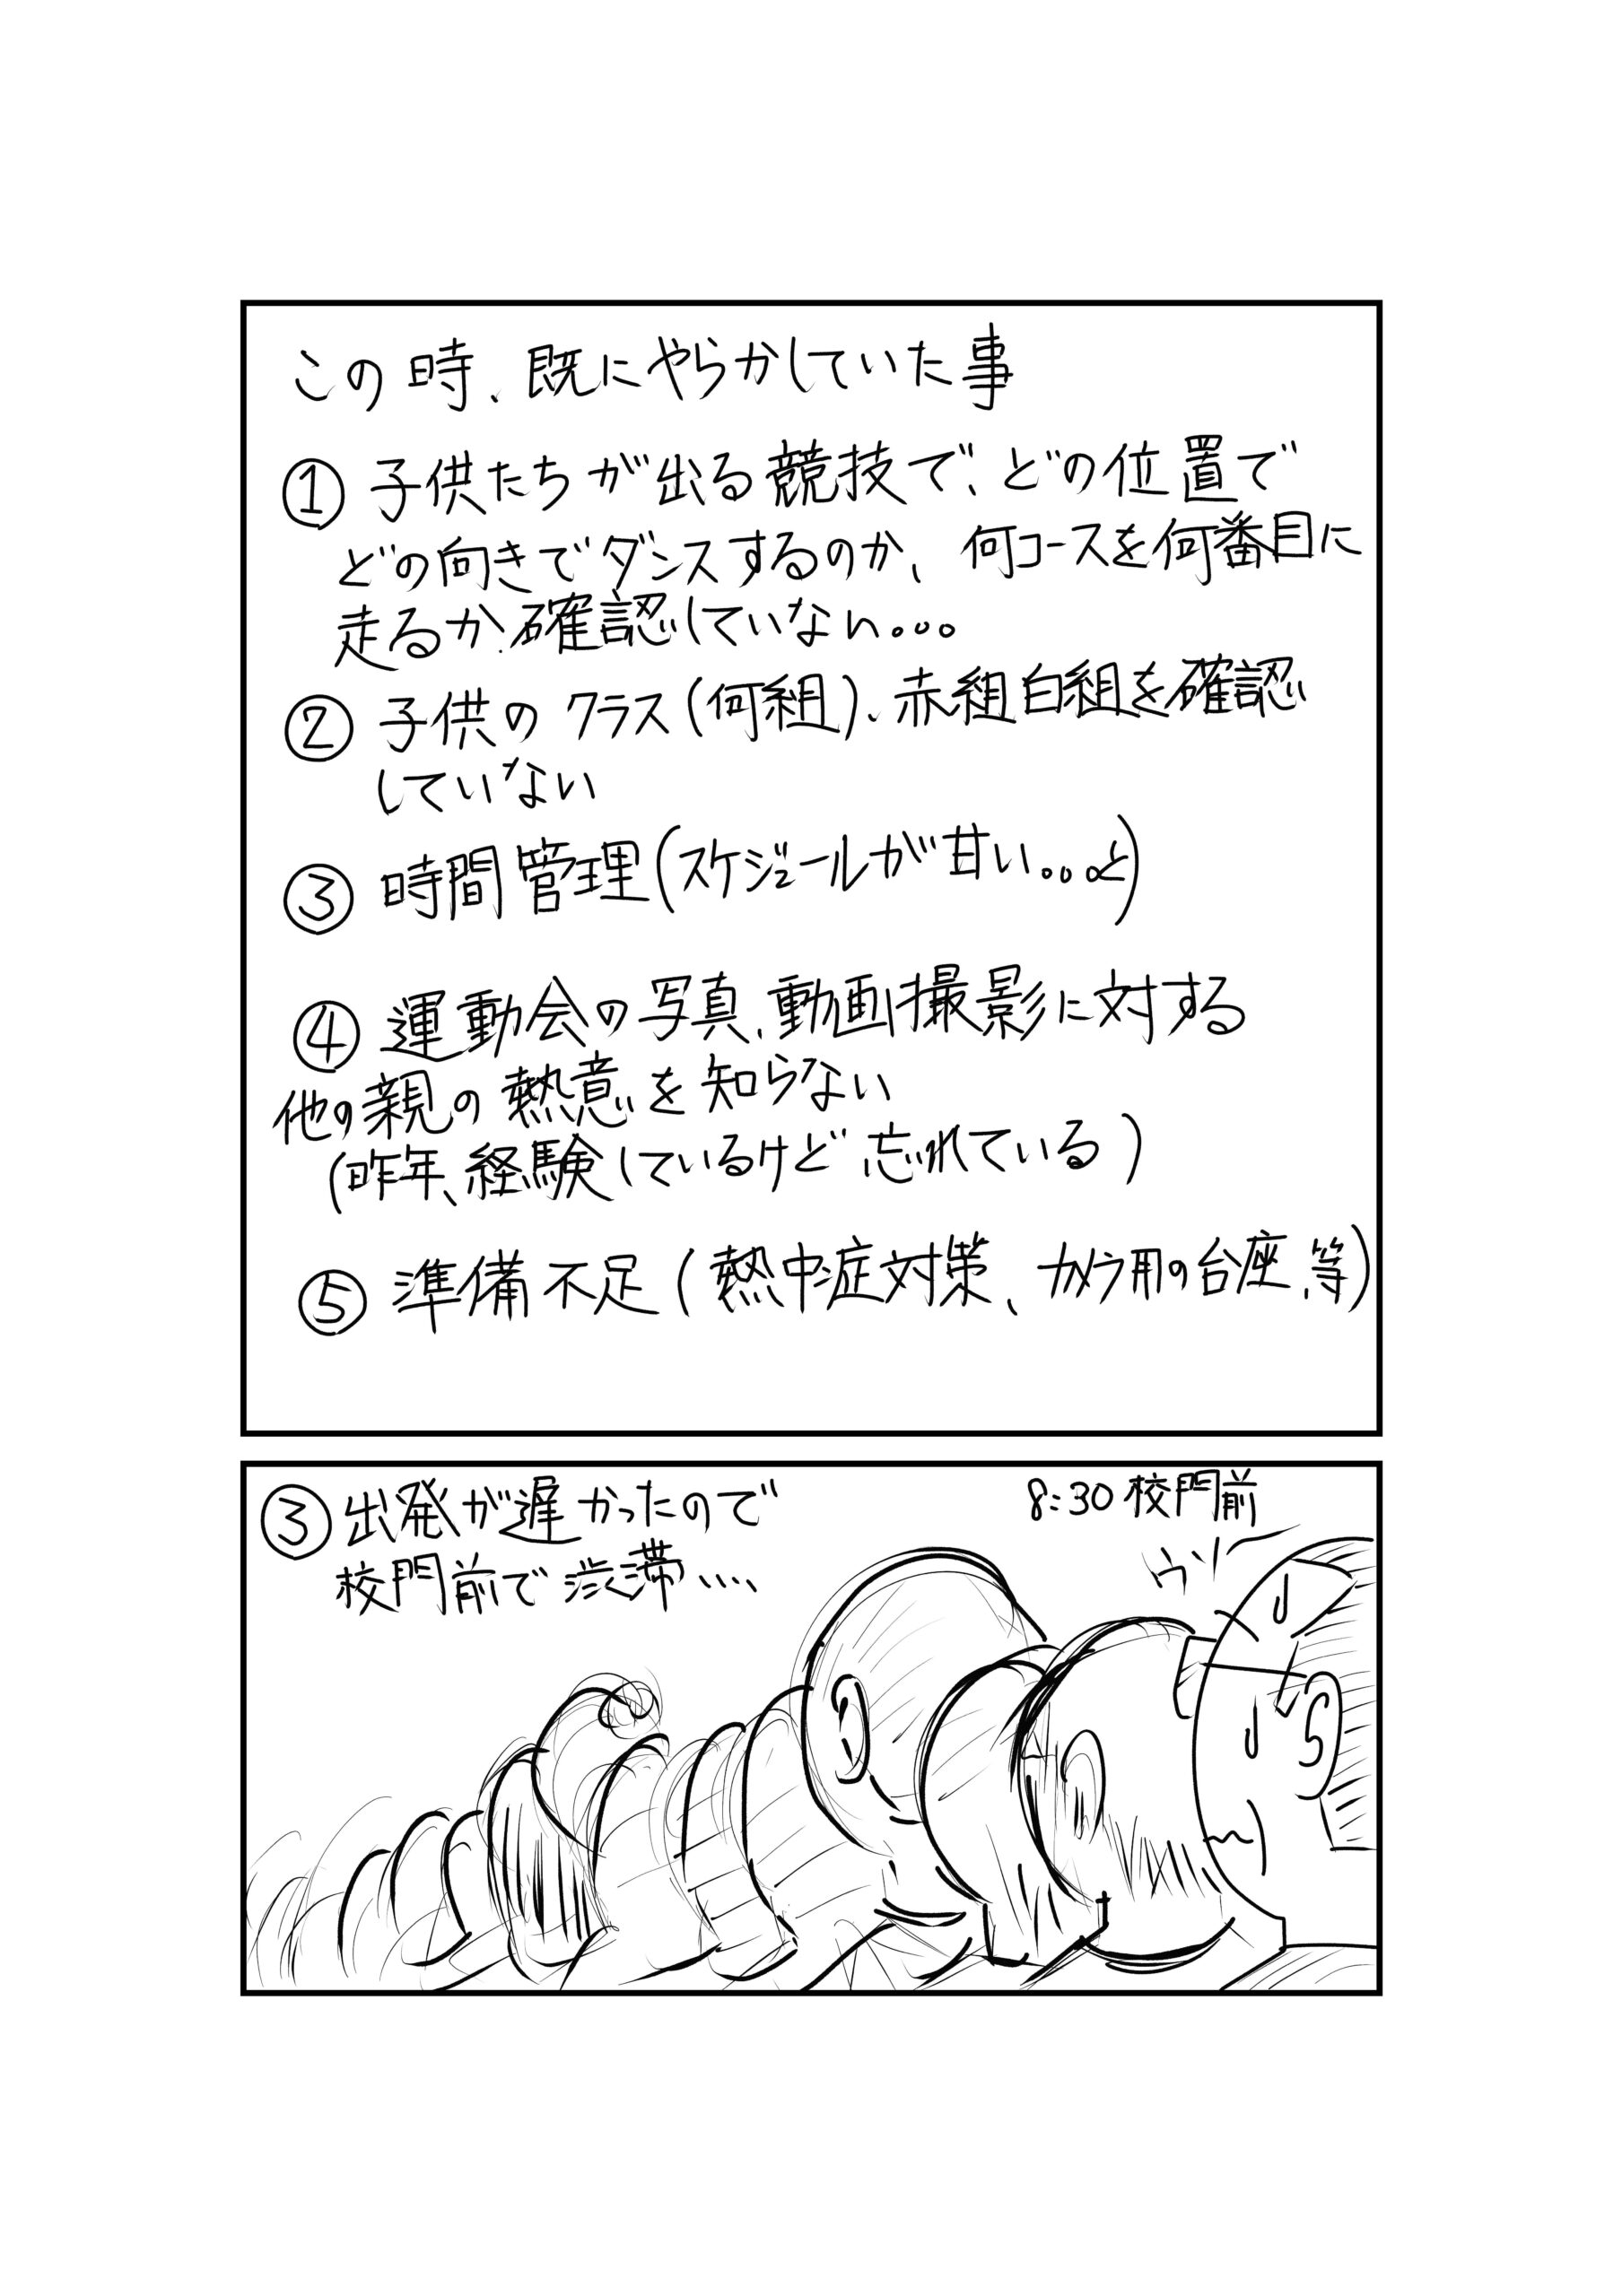 この時、既にやらかしていた事
① 子供たちが出る競技で、どの位置で
どの向きでダンスするのか、何コースを何番目に
走るか、確認していない。。。
② 子供のクラス(何組)、赤組白組を確認
していない
③ 時間管理(スケジュールが甘い。。。と)
④ 運動会の写真、動画撮影に対する
他の親の熱意を知らない
(昨年、経験しているけど忘れている)
⑤ 準備不足(熱中症対策、カメラ用の台座、等)
③ 出発が遅かったので
校門前で渋滞、、、、
8:30 校門前